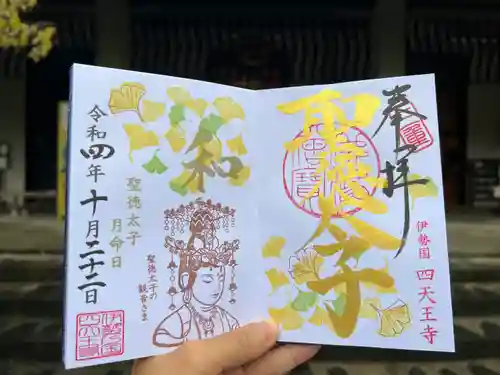 奉拝
聖徳太子
伊勢國 四天王寺
聖徳太子の
和
令和四年十月二十二日
聖徳太子
月命日
聖徳太子の
観音さま